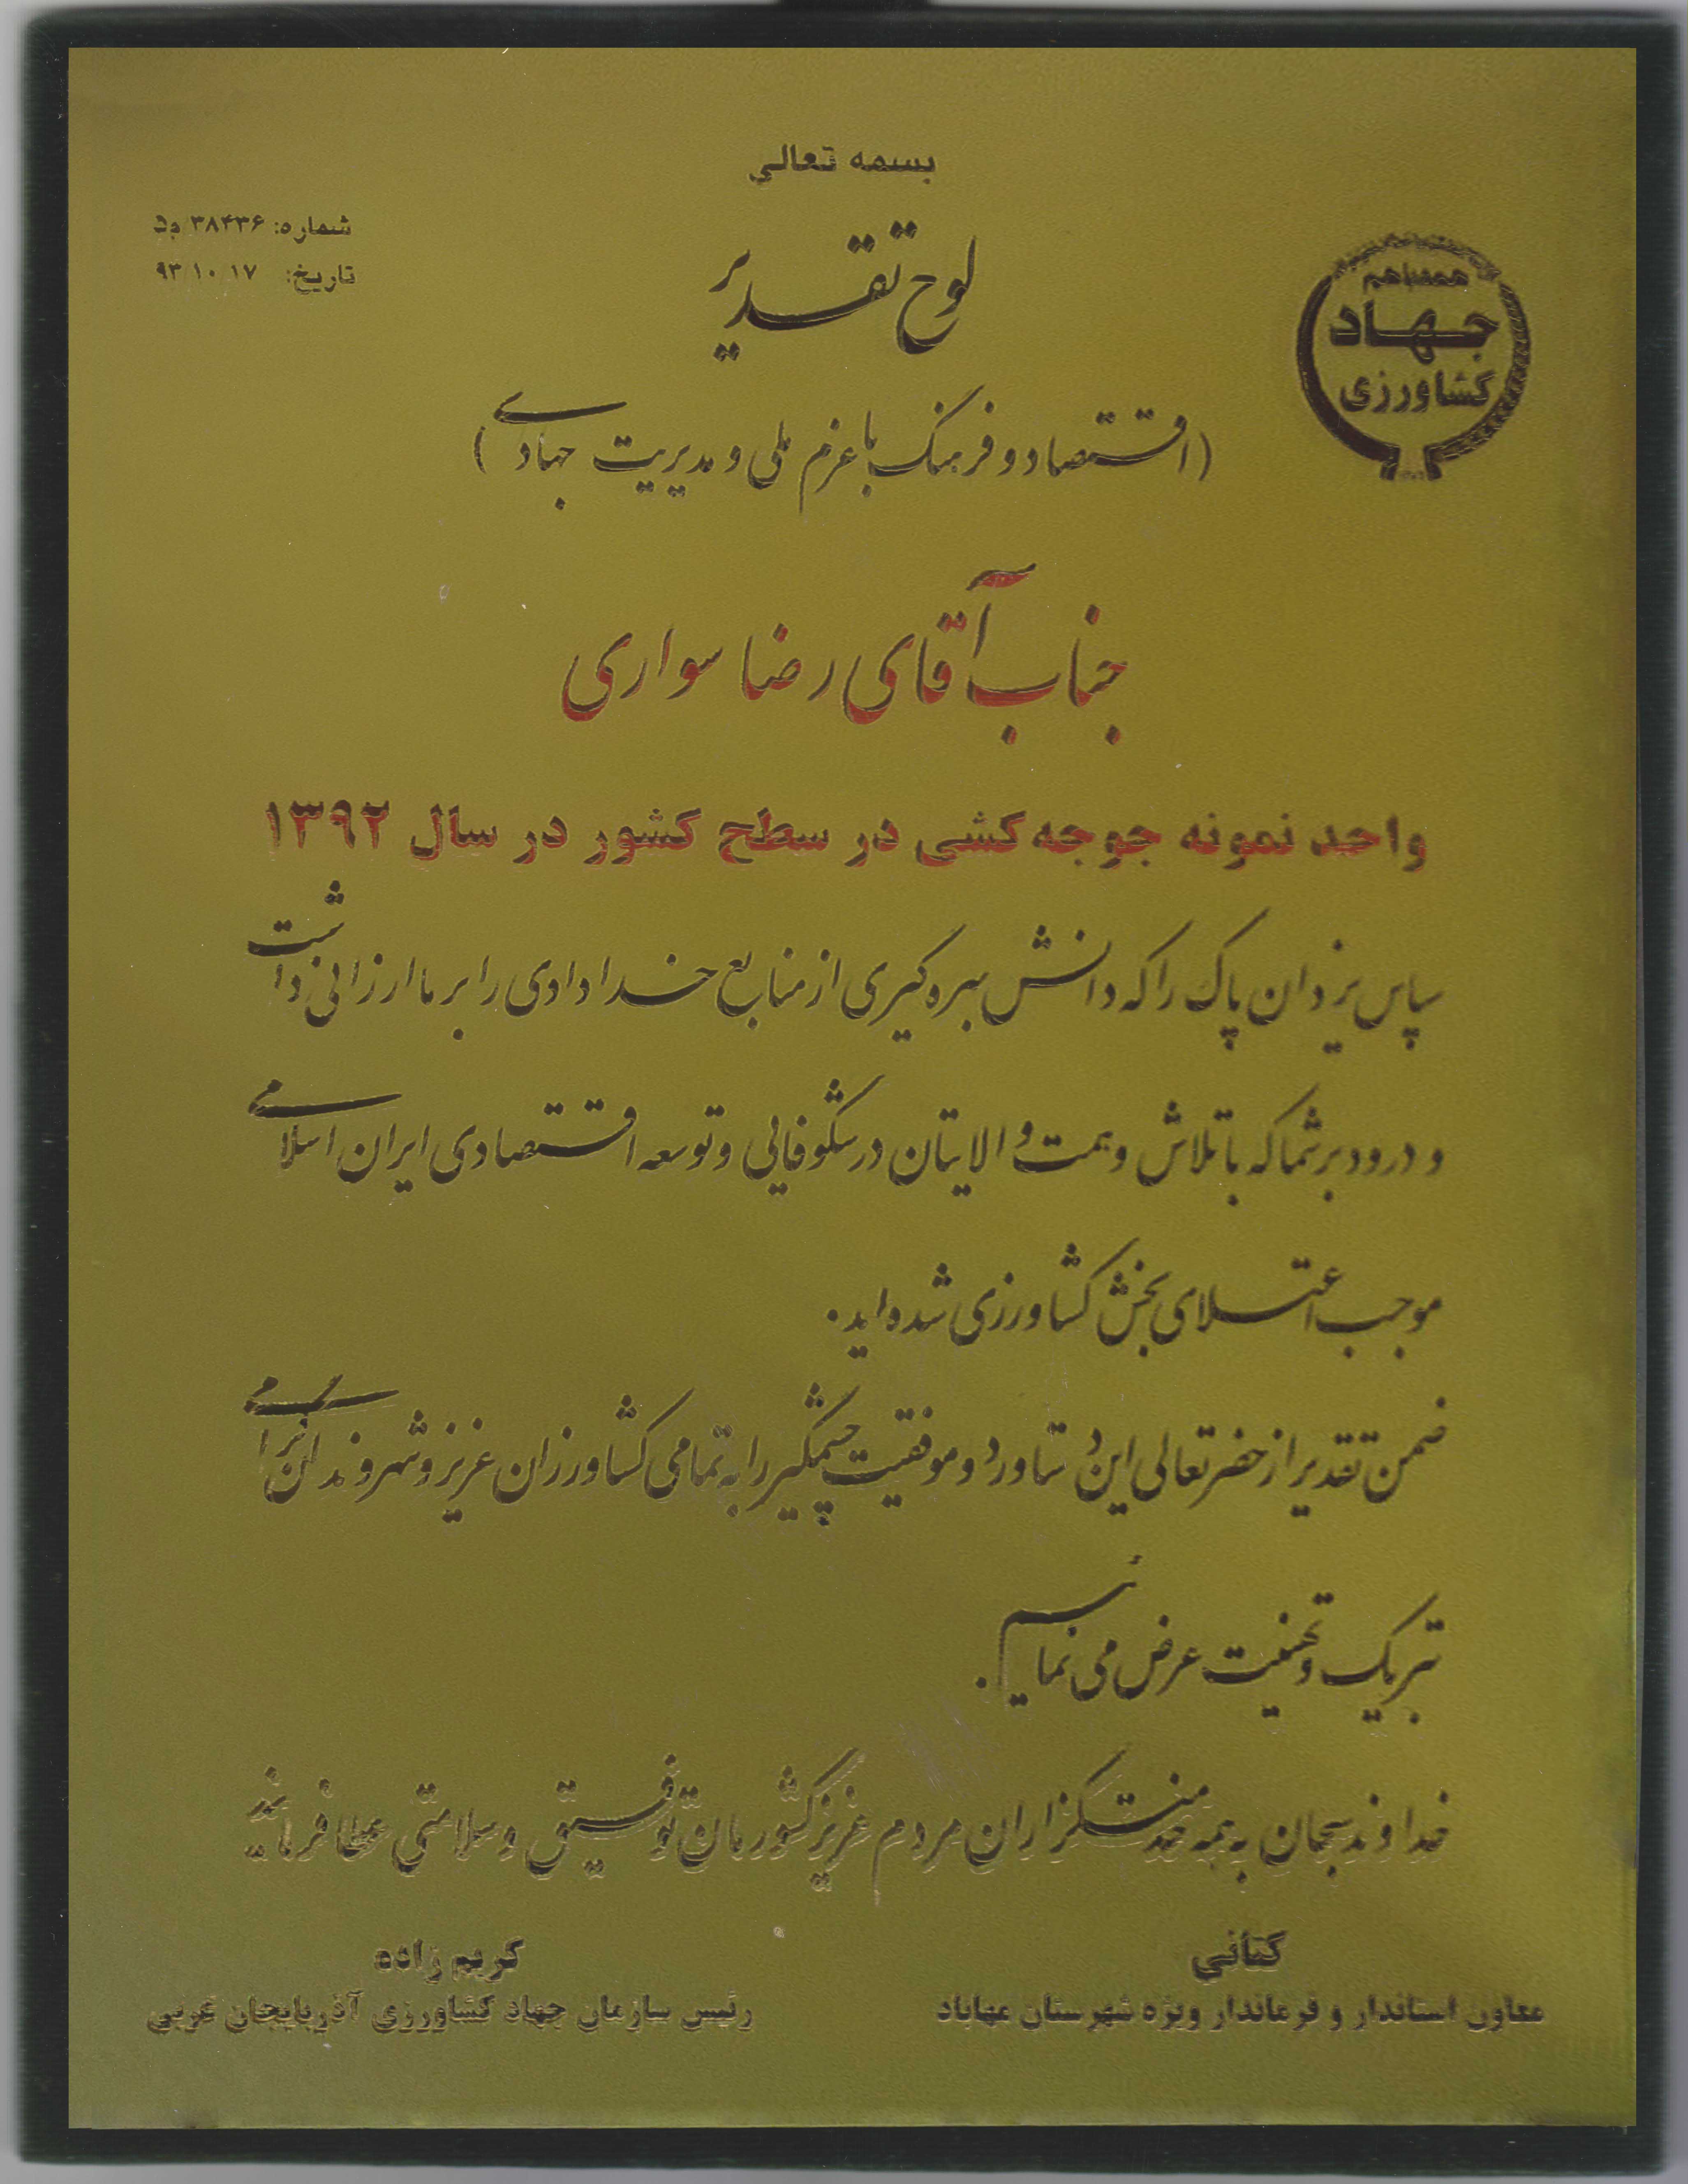 بسمه تعالی
شماره: ۳۸۴۳۶/د
تاریخ: ۹۳/۱۰/۱۷
لوح تقدیر
همه با هم
جهاد
کشاورزی
(اقتصاد و فرهنگ با عزم ملی و مدیریت جهادی)
جناب آقای رضا سواری
واحد نمونه جوجه کشی در سطح کشور در سال ۱۳۹۲
سپاس یزدان پاک را که دانش بهره گیری از منابع خدادادی را بر ما ارزانی داشت
و درود بر شما که با تلاش و همت والایتان در شکوفایی و توسعه اقتصادی ایران اسلامی
موجب اعتلای بخش کشاورزی شده اید.
ضمن تقدیر از حضرتعالی این دستاورد و موفقیت چشمگیر را به تمامی کشاورزان عزیز و شهروندان گرامی
تبریک و تهنیت عرض می نمایم.
خداوند سبحان به همه خدمتگزاران مردم عزیز کشورمان توفیق و سلامتی عطا فرماید
کتانی
معاون استاندار و فرماندار ویژه شهرستان مهاباد
کریم زاده
رئیس سازمان جهاد کشاورزی آذربایجان غربی